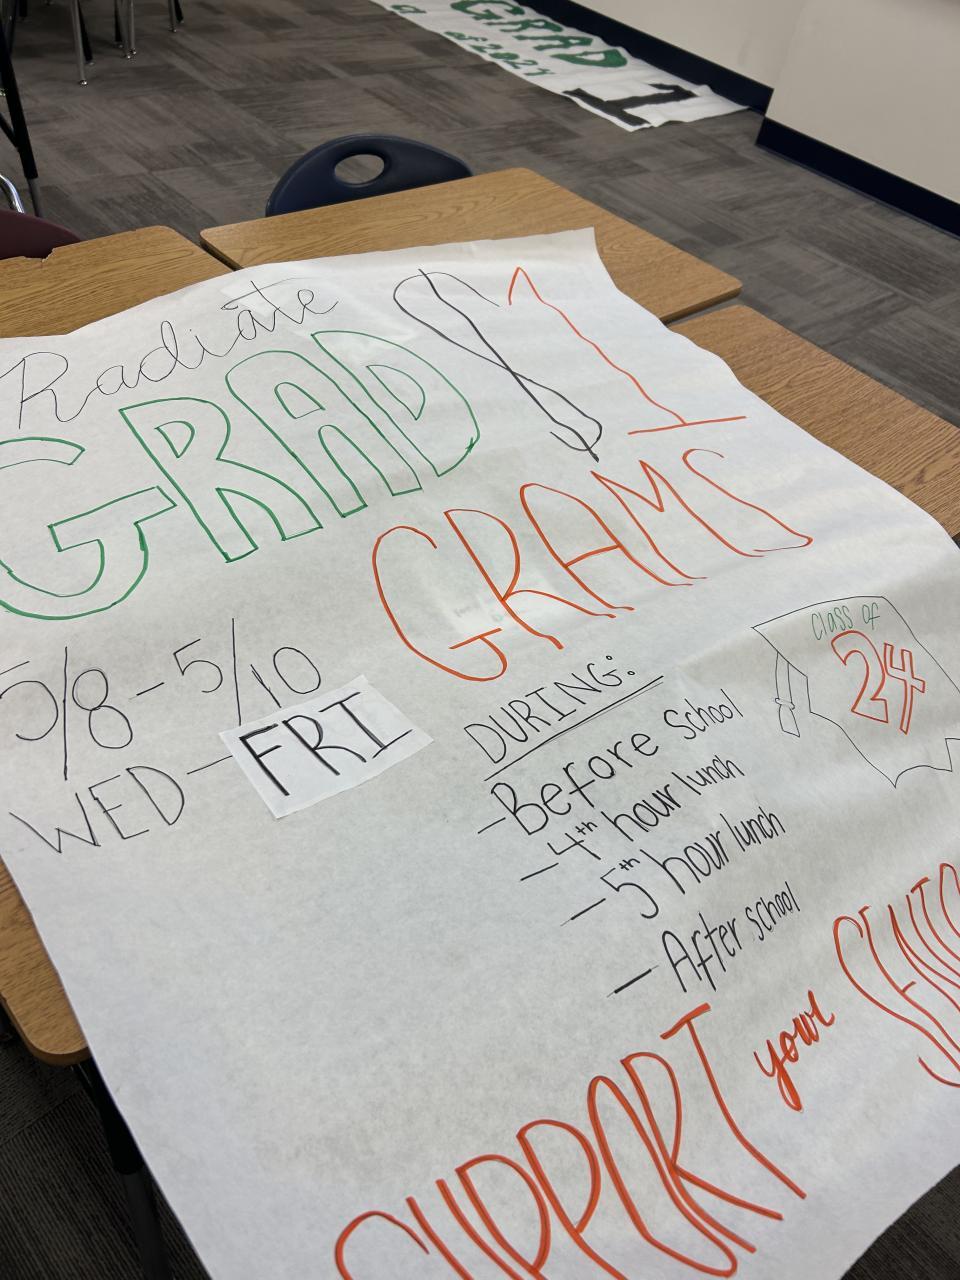 GRAD
of 2024
1
Radiate $1
GRAD
GRAMS
5/8-5/10
WED-FRI
DURING:
-Before School
-4th hour lunch
-5th hour lunch
-After school
Class of
24
SUPPORT your